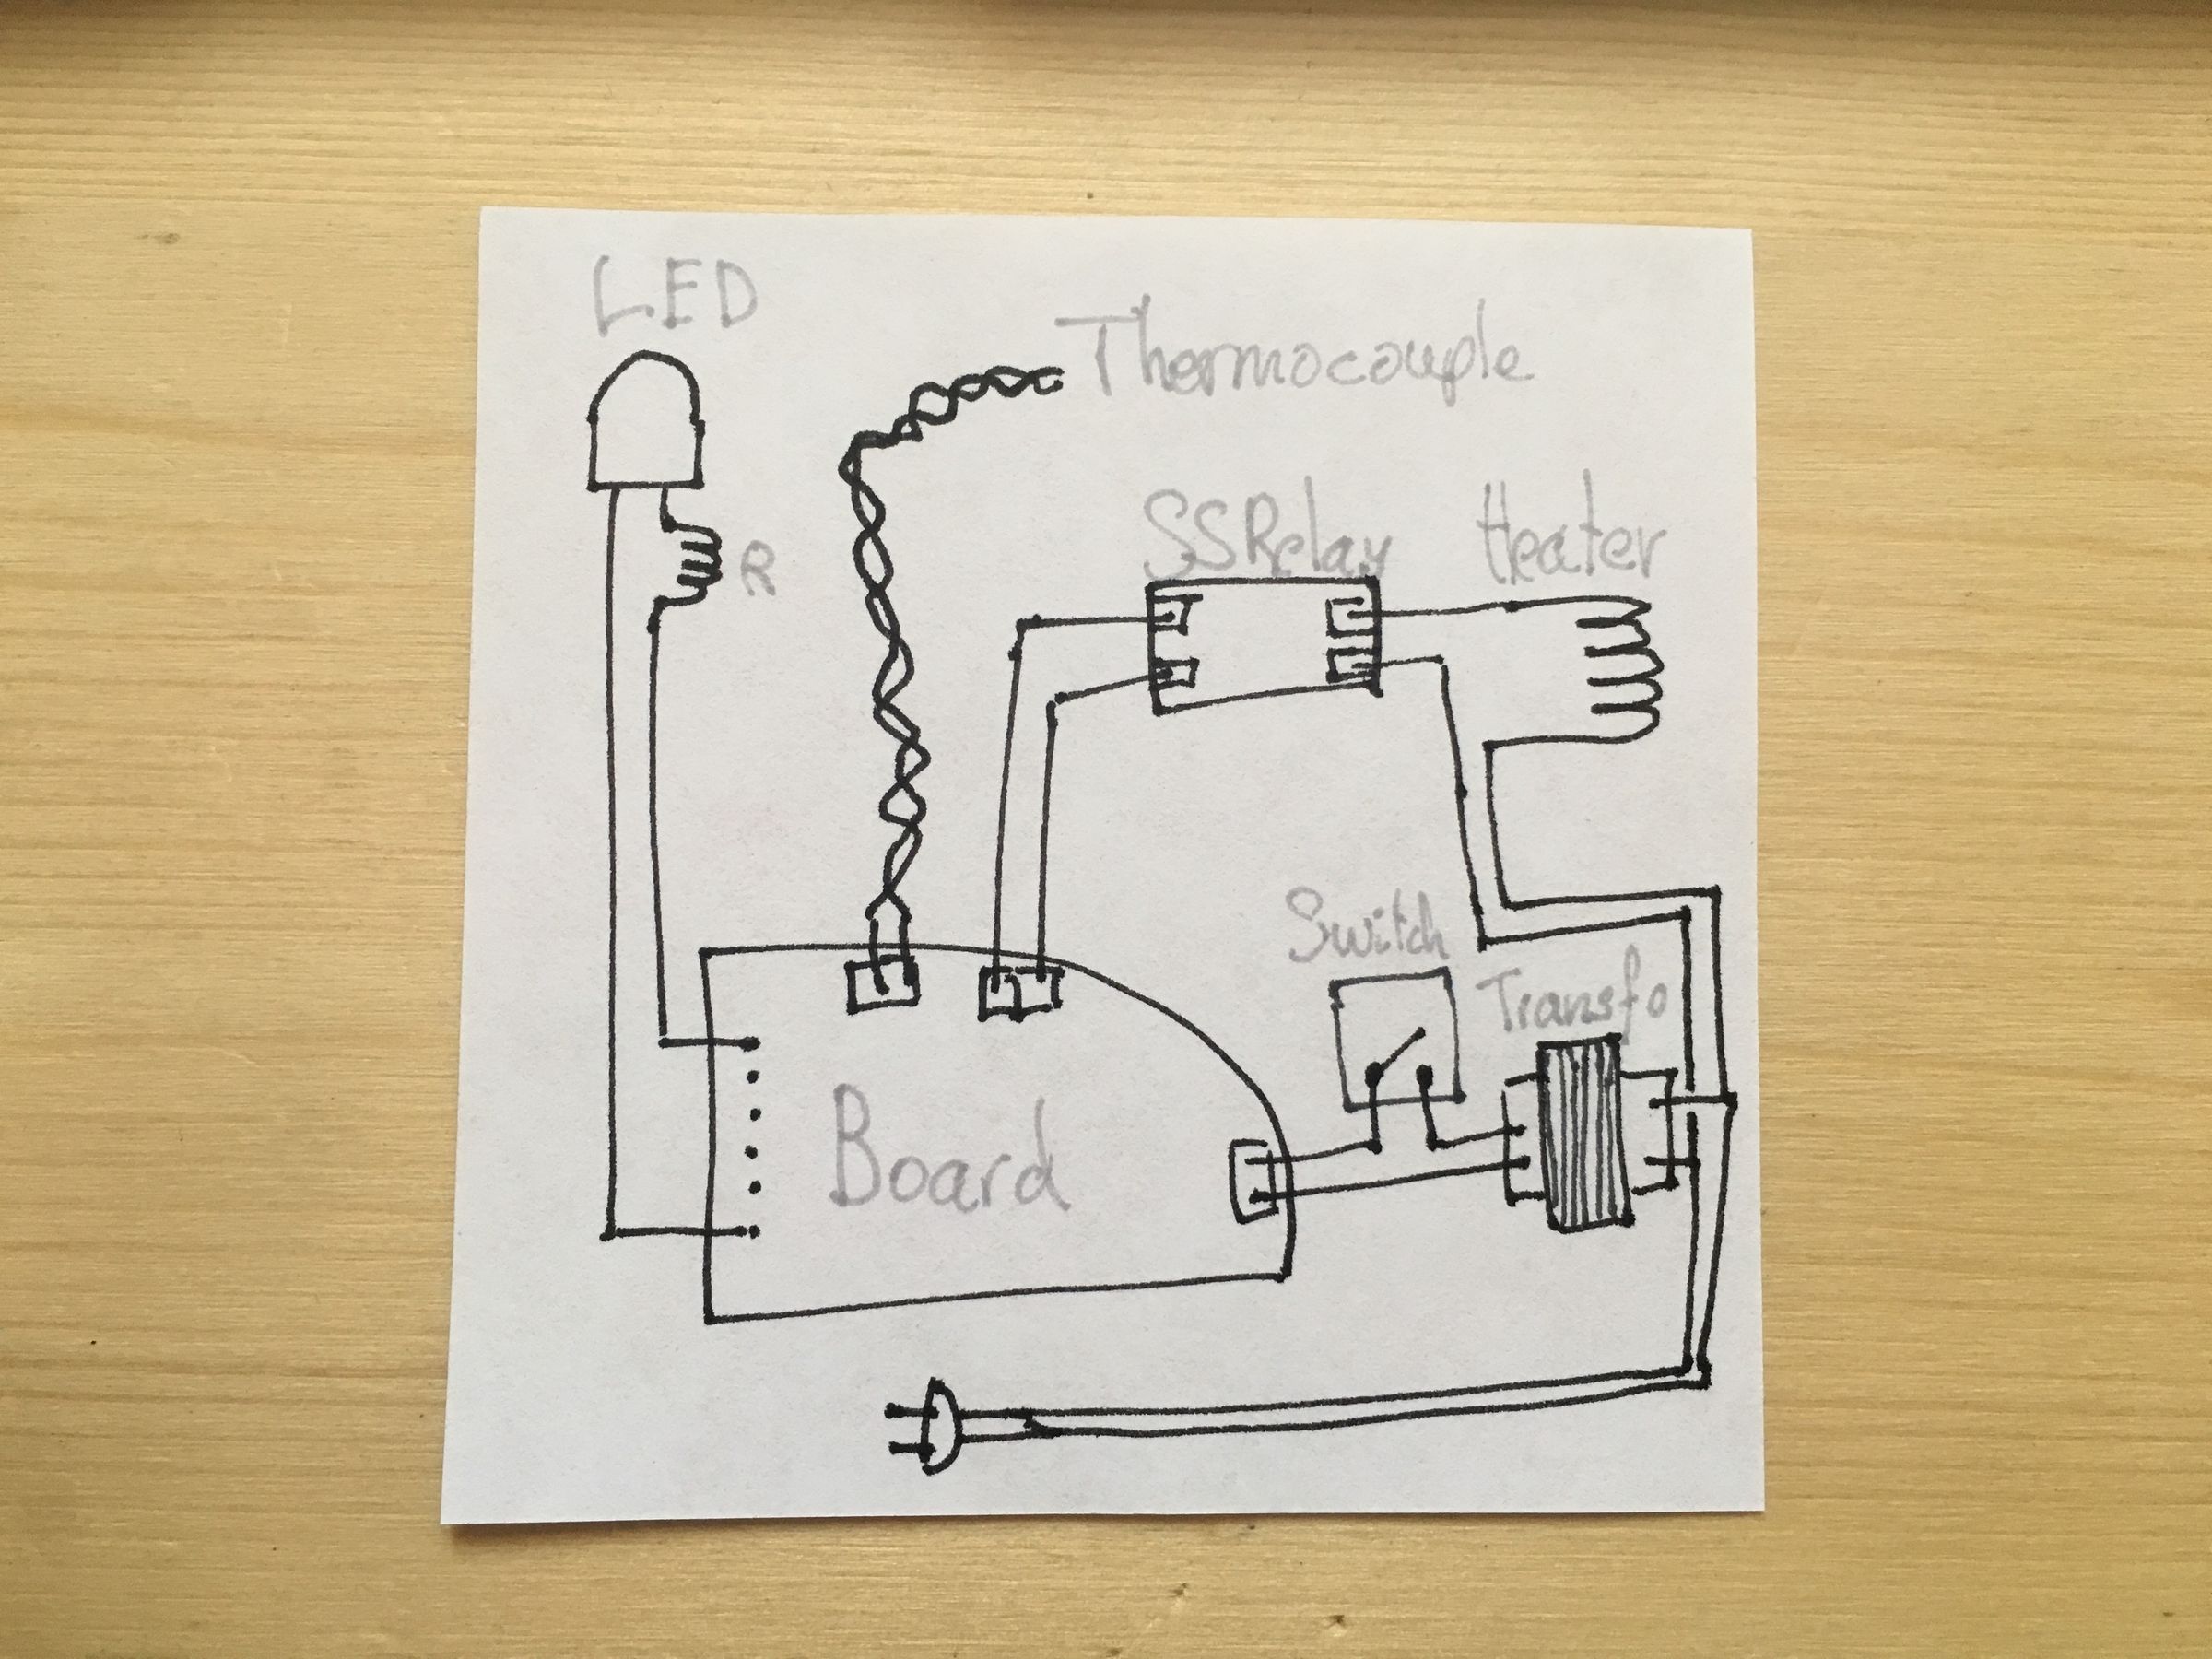 LED
Thermocouple
SSRelay
Heater
R
Switch
Transfo
Board